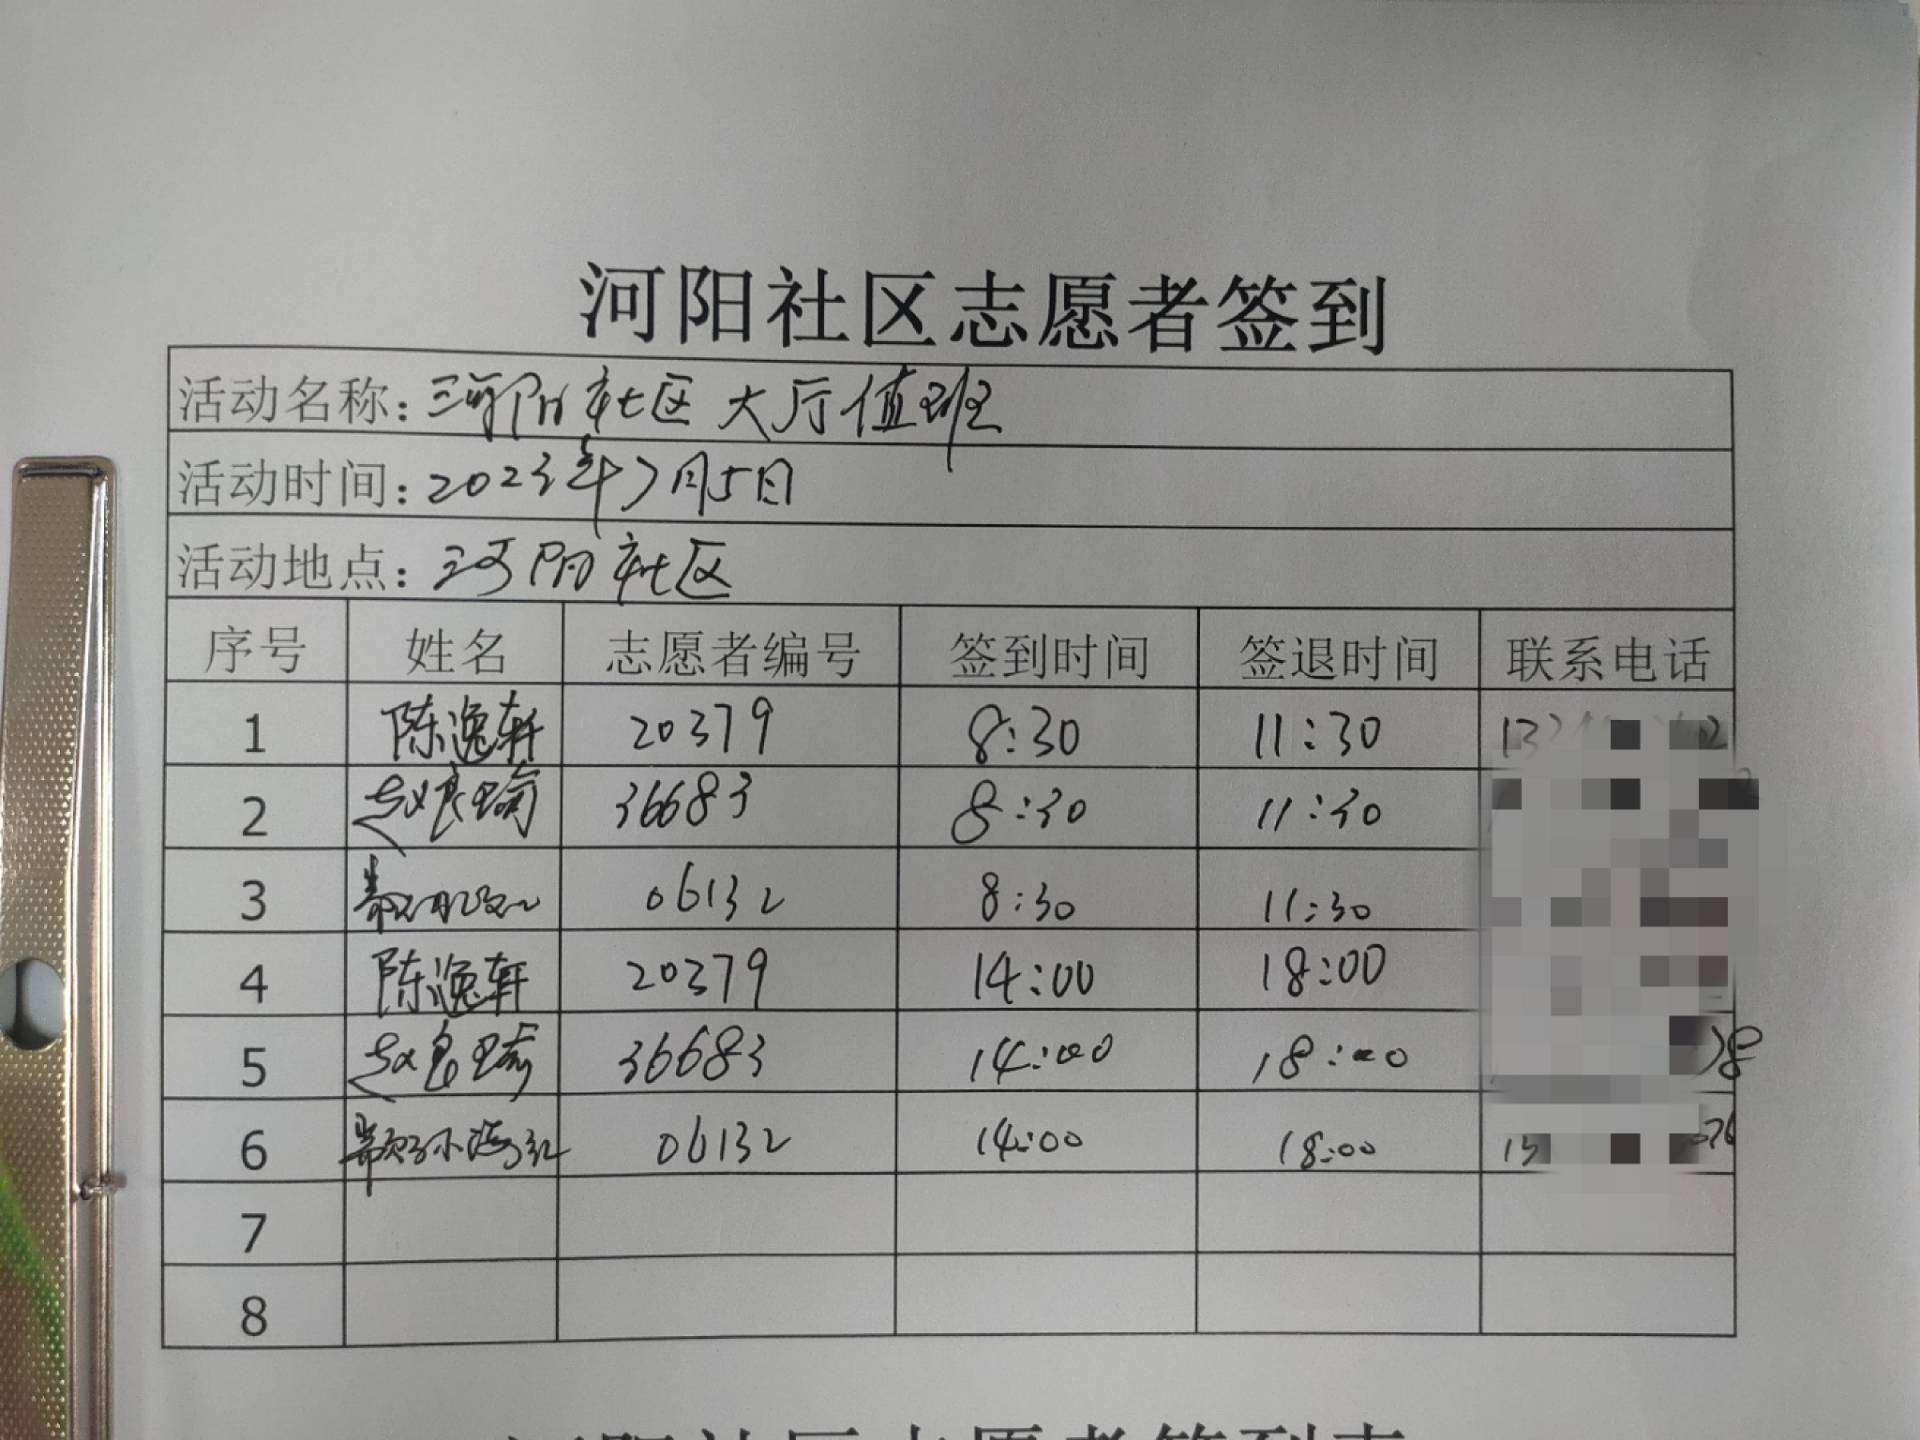 河阳社区志愿者签到
活动名称: 河阳社区大厅值班
活动时间: 2023年7月5日
活动地点: 河阳社区
序号 姓名 志愿者编号 签到时间 签退时间 联系电话
1 陈逸轩 20379 8:30 11:30
2 赵良瑜 36683 8:30 11:30
3 06132 8:30 11:30
4 陈逸轩 20379 14:00 18:00
5 赵良瑜 36683 14:00 18:00
6 06132 14:00 18:00
7
8
河阳社区志愿者签到表